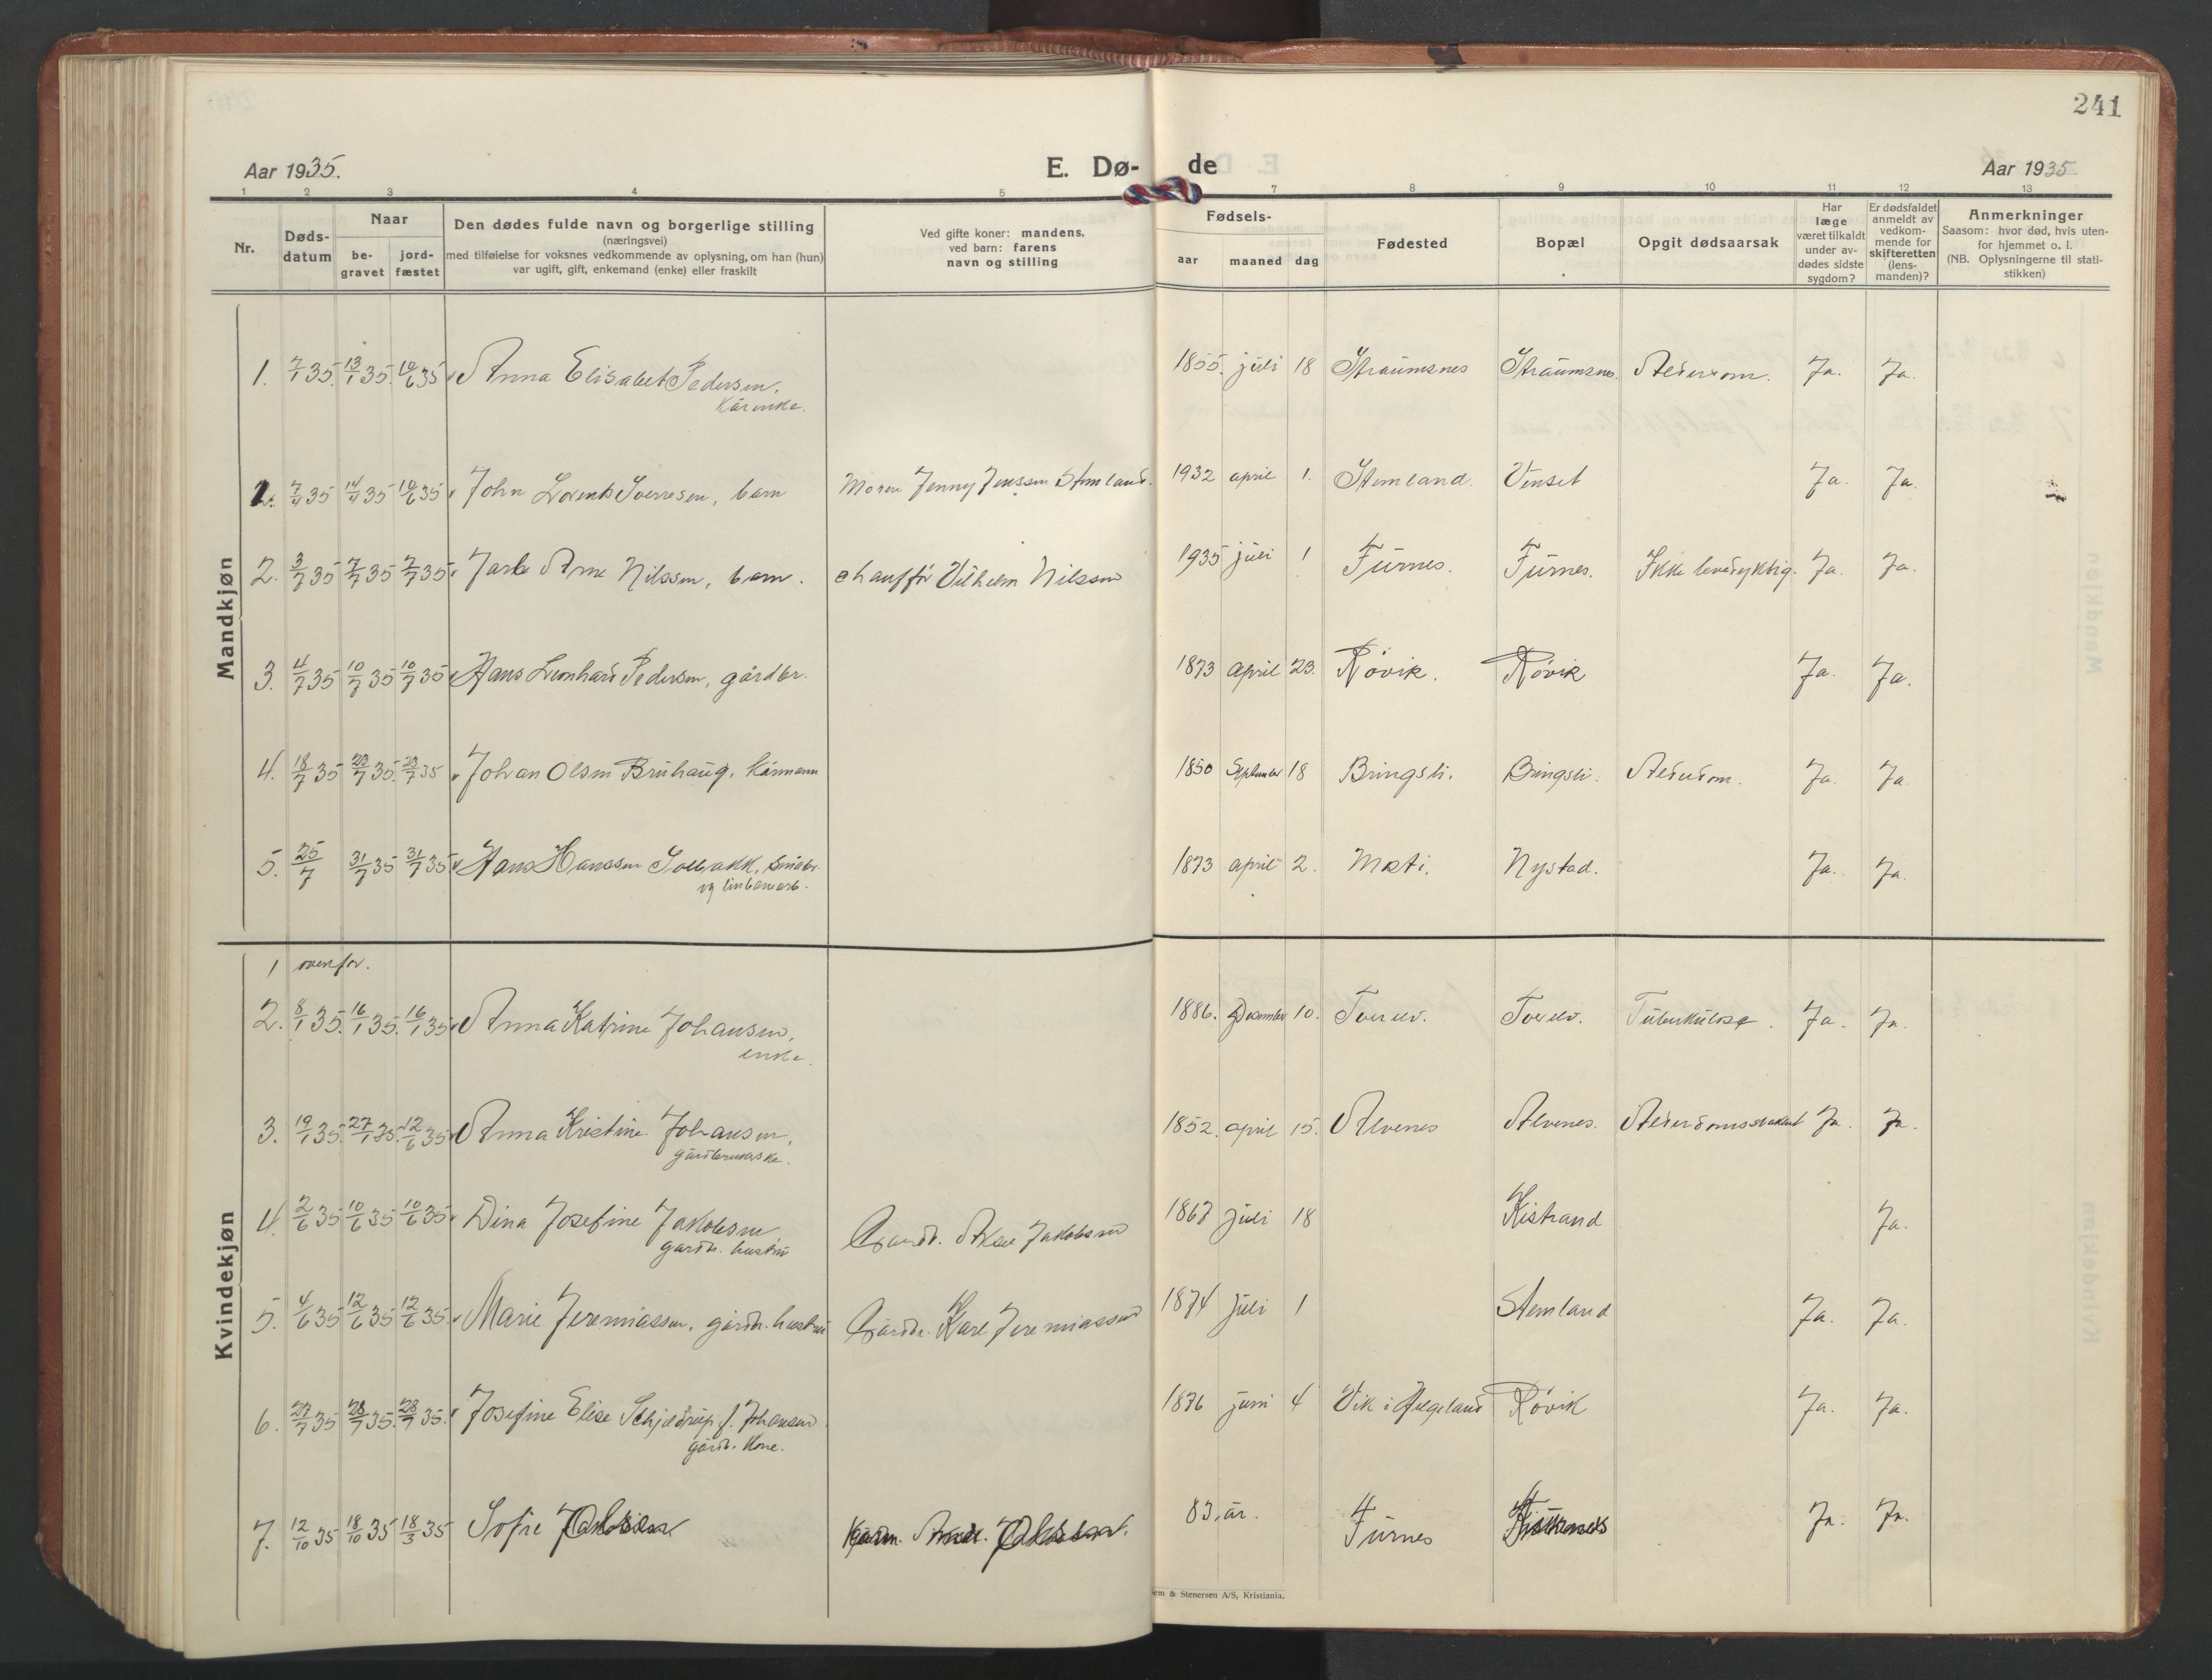 241
Aar 1935.
E. Dø- de
Aar 1935
1 2 3 4 5 7 8 9 10 11 12 13
Nr.
Døds-
datum
Naar
be-
gravet
jord-
fæstet
Den dødes fulde navn og borgerlige stilling
(næringsvei)
med tilføielse for voksnes vedkommende av oplysning, om han (hun)
var ugift, gift, enkemand (enke) eller fraskilt
Ved gifte koner: mandens,
ved barn: farens
navn og stilling
Fødsels-
aar maaned dag
Fødested
Bopæl
Opgit dødsaarsak
Har
læge
været tilkaldt
under av-
dødes sidste
sygdom?
Er dødsfaldet
anmeldt av
vedkom-
mende for
skifteretten
(lens-
manden)?
Anmerkninger
Saasom: hvor død, hvis uten-
for hjemmet o. l.
(NB. Oplysningerne til stati-
stikken)
Mandkjøn
1. 7/1 35. 13/1 35. 10/6 35 Anna Elisabet Pedersen, 1855. juli 18 Straumsnes Straumsnes. Alderdom. Ja. Ja.
kårenke.
1. 7/4 35 14/4 35 10/6 35 John Lorents Sverresen, barn Moren Jenny Jenssen Stemland. 1932 april 1. Stemland. Venset Ja. Ja.
2. 3/7 35 7/7 35 7/7 35 Jarle Arne Nilssen, barn. chauffør Vilhelm Nilssen 1935 juli 1 Furnes. Furnes. Ikke levedyktig. Ja. Ja.
3. 4/7 35 10/7 35 10/7 35 Hans Leonhard Pedersen, gårdbr. 1873 april 23. Røvik. Røvik Ja. Ja.
4. 18/7 35 23/7 35. 23/7 35 Johan Olsen Bruhaug, kårmann 1850 September 18 Bringsli. Bringsli. Alderdom. Ja. Ja.
5. 25/7 31/7 35 31/7 35 Hans Hanssen Solbakk, småbr. 1873 april 2. Mosti. Nystad. Ja. Ja.
og linbanearb.
Kvindekjøn
1 ovenfor.
2. 8/1 35. 16/1 35. 16/1 35 Anna Katrine Johansen, 1886. Desember 10. Toverelv. Tuberkulose. Ja. Ja.
enke.
3. 19/1 35. 27/1 35. 12/6 35 Anna Kristine Johansen, 1852. april 15. Alvenes Alvenes. Ja. Ja.
gårdbrukerske.
4. 2/6 35 10/6 35 10/6 35 Dina Josefine Jakobsen Gårdbr. Aksel Jakobsen 1867 juli 18 Kistrand Ja.
gårdbr. hustru
5. 4/6 35 12/6 35 12/6 35 Marie Jeremiassen, gårdbr. hustru Gårdbr. Karl Jeremiassen 1874 juli 1 Stemland Ja. Ja.
6. 27/7 35 28/7 35. 28/7 35. Josefine Elise Schjeldrup f. Johansen 1876 juni 4 Vik i Helgeland Røvik Ja. Ja.
gårdbr. kone.
7. 12/10 35 18/10 35 18/3 35 Sofie 83 år. Furnes Ja. Ja.
sem & Stenersen A/S, Kristiania.